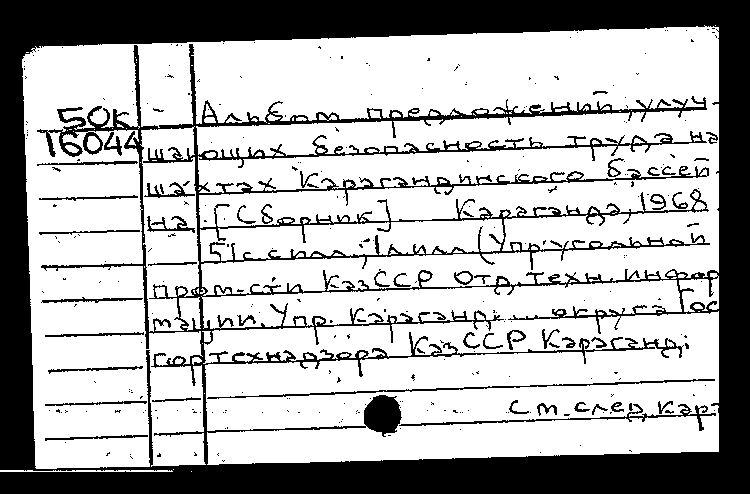 50к Альбом предложений, улуч-
16044 шающих безопасность труда на
шахтах Карагандинского бассей-
на. [Сборник]. Караганда, 1968.
51с. с илл.; 1 л. илл. (Упр. угольной
пром-сти КазССР. Отд. техн. инфор
мации. Упр. Караганд. ... округа Гос
гортехнадзора КазССР. Караганд.
См. след. карт